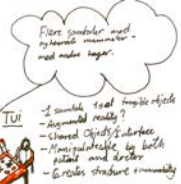 Flere samtaler med
med andre leger.
TUI
- 1 samtale 1 set tangible objects
- Augmented reality?
- Shared Objects/Interface
- Manipulateable by both
patient and doctor
- Creates structure &